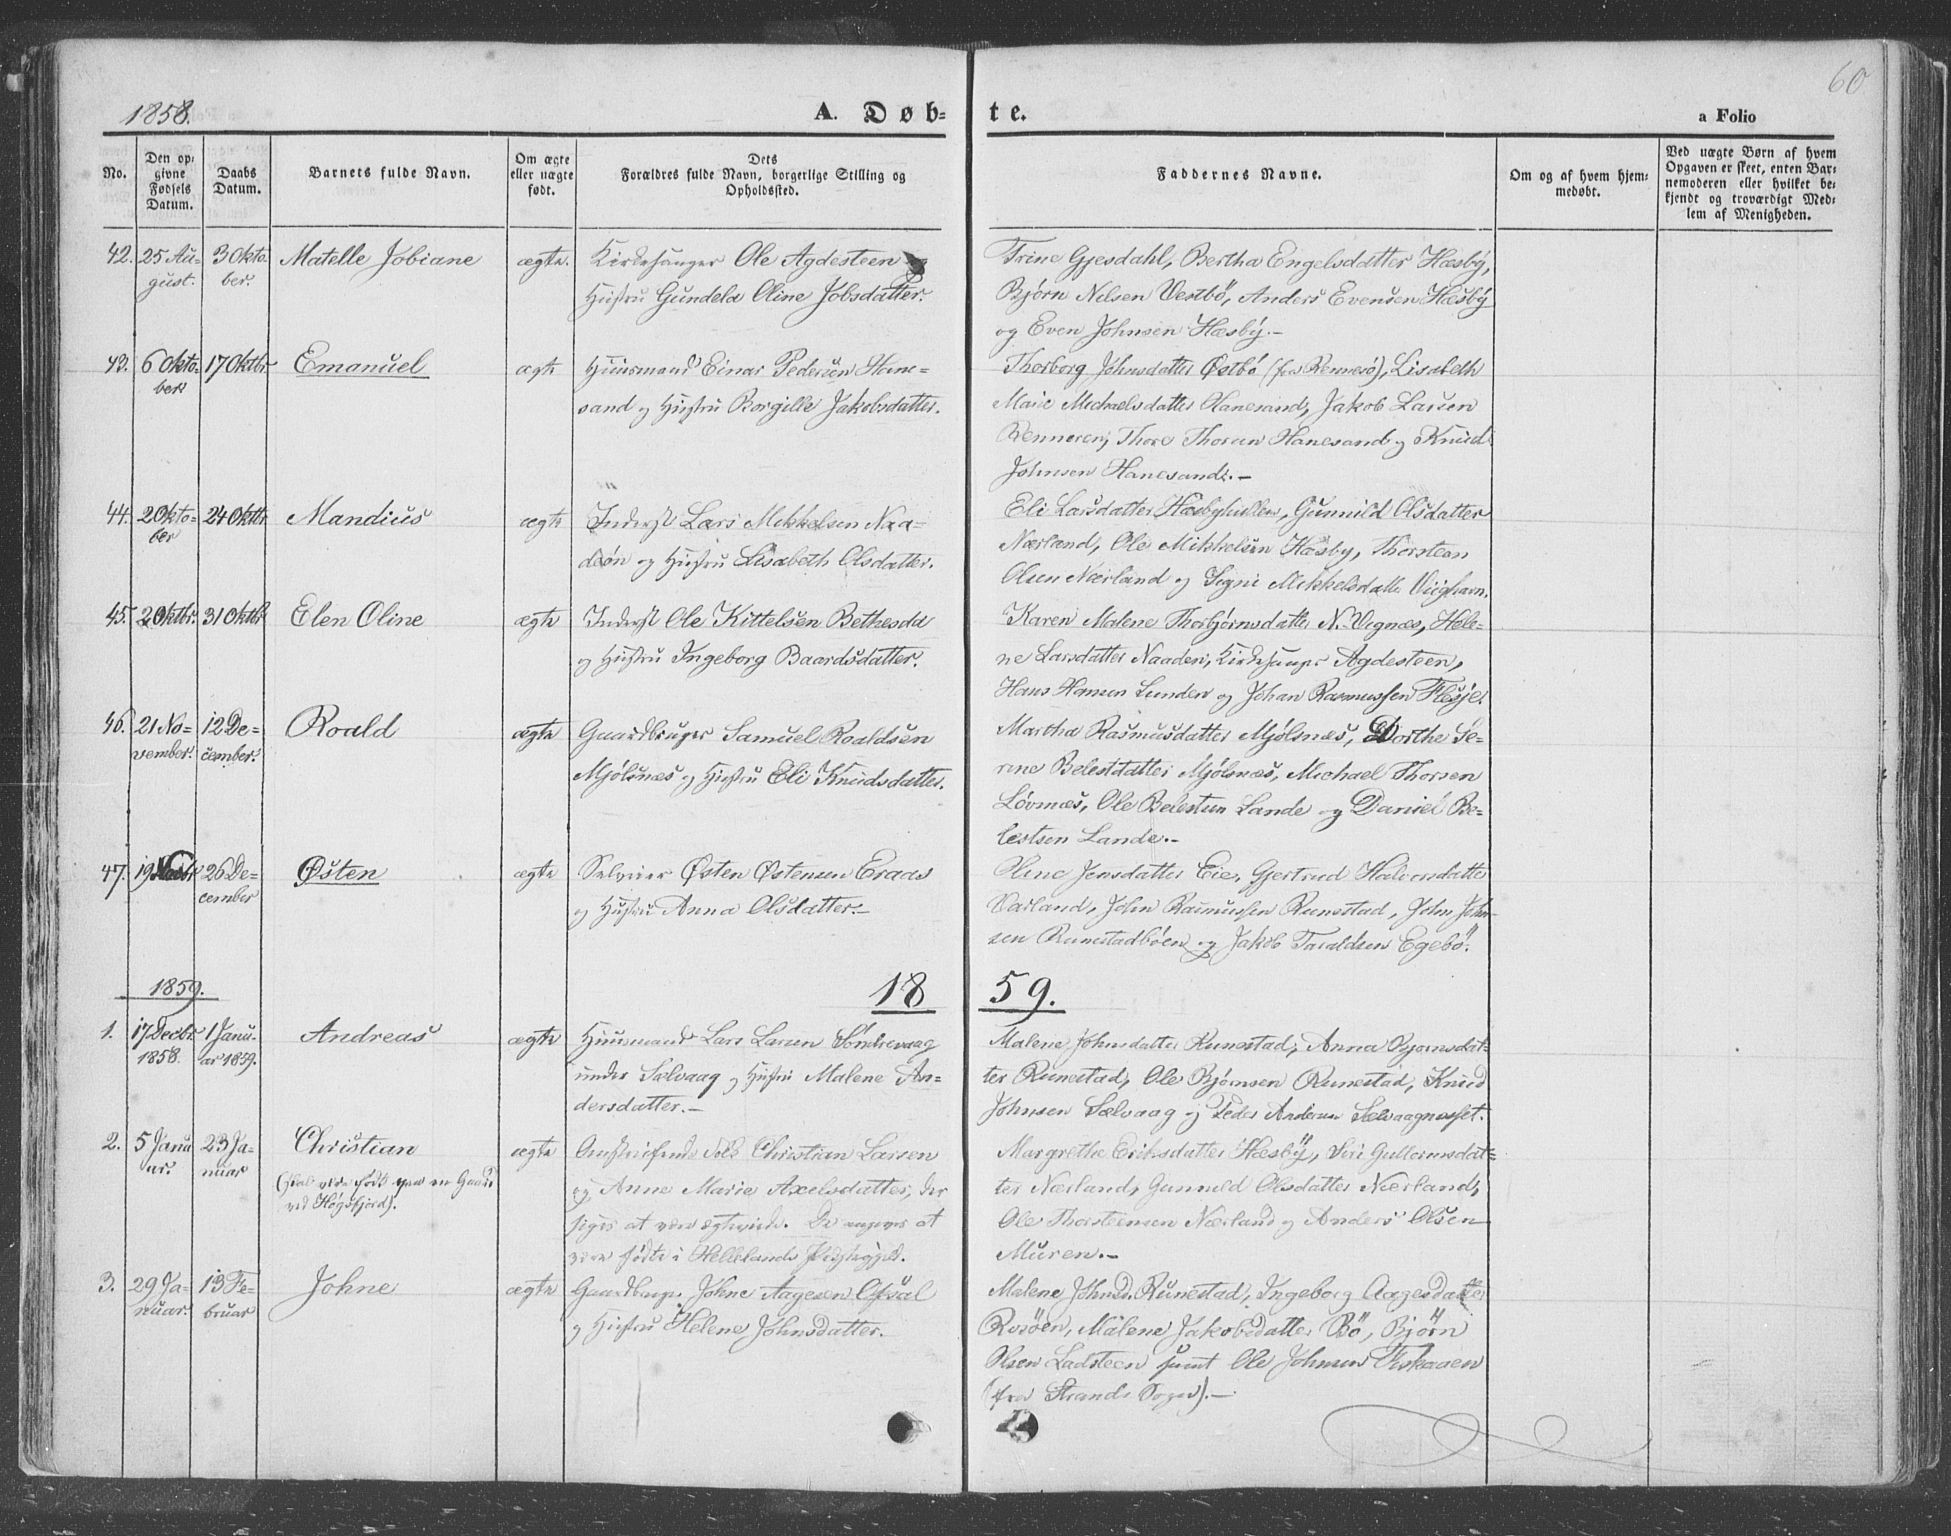 60
1858.
A. Døb-
te.
a Folio
No.
Den op-
givne
Fødsels
Datum.
Daabs
Datum.
Barnets fulde Navn.
Om ægte
eller uægte
født.
Dets
Forældres fulde Navn, borgerlige Stilling og
Opholdssted.
Faddernes Navne.
Om og af hvem hjem-
medøbt.
Ved uægte Børn af hvem
Opgaven er skeet, enten Bar-
nemoderen eller hvilket be-
kjendt og troværdigt Med-
lem af Menigheden.
42. 25 Au-
gust.
3 Okto-
ber.
Matelle Jobiane
ægte.
Kirkesanger Ole Agdesteen og
Hustru Gundela Oline Jobsdatter.
Trine Gjesdahl, Bertha Engelsdatter Hæsby,
Bjørn Nilsen Vestbö, Anders Evensen Hæsby
og Even Johnsen Hæsby.-
43. 6 Okto-
ber
17 Oktbr
Emanuel
ægte
Huusmand Einar Pedersen Hane-
sand og Hustru Borgille Jakobsdatter.
Thorborg Johnsdatter Østbö (fra Rennesö), Lisabeth
Marie Michaelsdatter Hanesand, Jakob Larsen
Renneren, Thore Thorsen Hanesand og Knud
Johnsen Hanesand.-
44. 2 Okto-
ber
24 Oktbr
Mandius
ægte
Inderst Lars Mikkelsen Naa-
deön og Hustru Lisabeth Olsdatter.
Eli Larsdatter Hæsbyhullen, Gunnild Olsdatter
Nærland, Ole Mikkelsen Hæsby, Thorsteen
Olsen Nærland og Signi Mikkelsdatter Viighavn.
45. 2 Oktbr.
31 Oktbr
Elen Oline
ægte
Inderst Ole Kittelsen Bethesda
og Hustru Ingeborg Baardsdatter.
Karen Malene Thorbjørnsdatter N. Vignæs, Hele-
ne Larsdatter Naaden, Kirkesanger Agdesteen,
Hans Hansen Lunden og Johan Rasmussen Flesje.
46. 21 No-
vember.
12 De-
cember.
Roald
ægte
Gaardbruger Samuel Roaldsen
Mjølsnæs og Hustru Eli Knudsdatter.
Martha Rasmusdatter Mjølsnæs, Dorthe Se-
rine Belestdatter Mjølsnæs, Michael Thorsen
Løvnæs, Ole Belestsen Lande og Daniel Be-
lestsen Lande.-
47. 19 Novbr
26 De-
cember
Østen
ægte
Selveier Østen Østensen Eraas
og Hustru Anna Olsdatter.-
Oline Jensdatter Eie, Gjertrud Halvorsdatter
Varland, John Rasmussen Runestad, John John-
sen Runestadböen og Jakob Taraldsen Egebö.
1859.
18
59.
1. 17 Decbr.
1858.
1 Janu-
ar 1859.
Andreas
ægte
Huusmand Lars Larsen Söndrevaag
under Sælvaag og Hustru Malene An-
dersdatter.-
Malene Johnsdatter Runestad, Anna Bjørnsdat-
ter Runestad, Ole Bjørnsen Runestad, Knud
Johnsen Sælvaag og Peder Andersen Sælvaagnæsset.
2. 5 Janu
ar.
23 Ja-
nuar
Christian
(skal være födt paa en Gaard
ved Høgsfjord).
ægte
Omstreifende Folk Christian Larsen
og Anne Marie Axelsdatter, der
siges at være ægteviede. De angives at
være födte i Hellelands Præstegjeld.
Margrethe Eriksdatter Hæsby, Siri Guttormsdat-
ter Nærland, Gunnild Olsdatter Nærland,
Ole Thorsteensen Nærland og Anders Olsen
Muren.-
3. 29 Ja-
nuar.
13 Fe-
bruar
Johne
ægte
Gaardbruger Johne Aagesen Ofval
og Hustru Helene Johnsdatter.
Malene Johnsd. Runestad, Ingeborg Aagesdatter
Rosöen, Malene Jakobsdatter Bö, Bjørn
Olsen Ladsteen samt Ole Johnsen Fiskaaen
(fra Strands Sogn).-